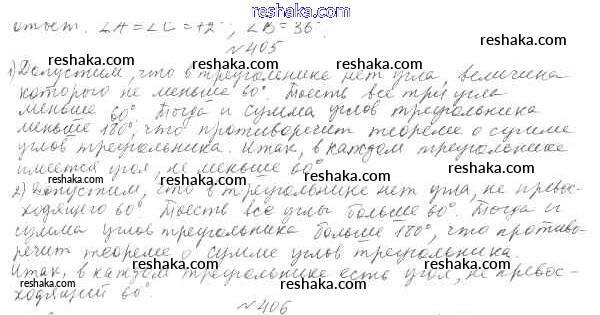 Ответ. ∠A = ∠C = 72°; ∠B = 36°.
reshaka.com
№405
reshaka.com reshaka.com reshaka.com
1) Допустим, что в треугольнике нет угла, величина
которого не меньше 60°. Тоесть все три угла
reshaka.com reshaka.com reshaka.com
меньше 60°. Тогда и сумма углов треугольника
меньше 180°, что противоречит теореме о сумме
reshaka.com reshaka.com reshaka.com
углов треугольника. Итак, в каждом треугольнике
имеется угол, не меньше 60°
reshaka.com reshaka.com reshaka.com
2) Допустим, что в треугольнике нет угла, не превос-
ходящего 60°. Тоесть все углы больше 60°. Тогда и
reshaka.com reshaka.com reshaka.com
сумма углов треугольника больше 180°, что противо-
речит теореме о сумме углов треугольника.
reshaka.com reshaka.com reshaka.com
Итак, в каждом треугольнике есть угол, не превос-
ходящий 60°.
reshaka.com reshaka.com reshaka.com
№406